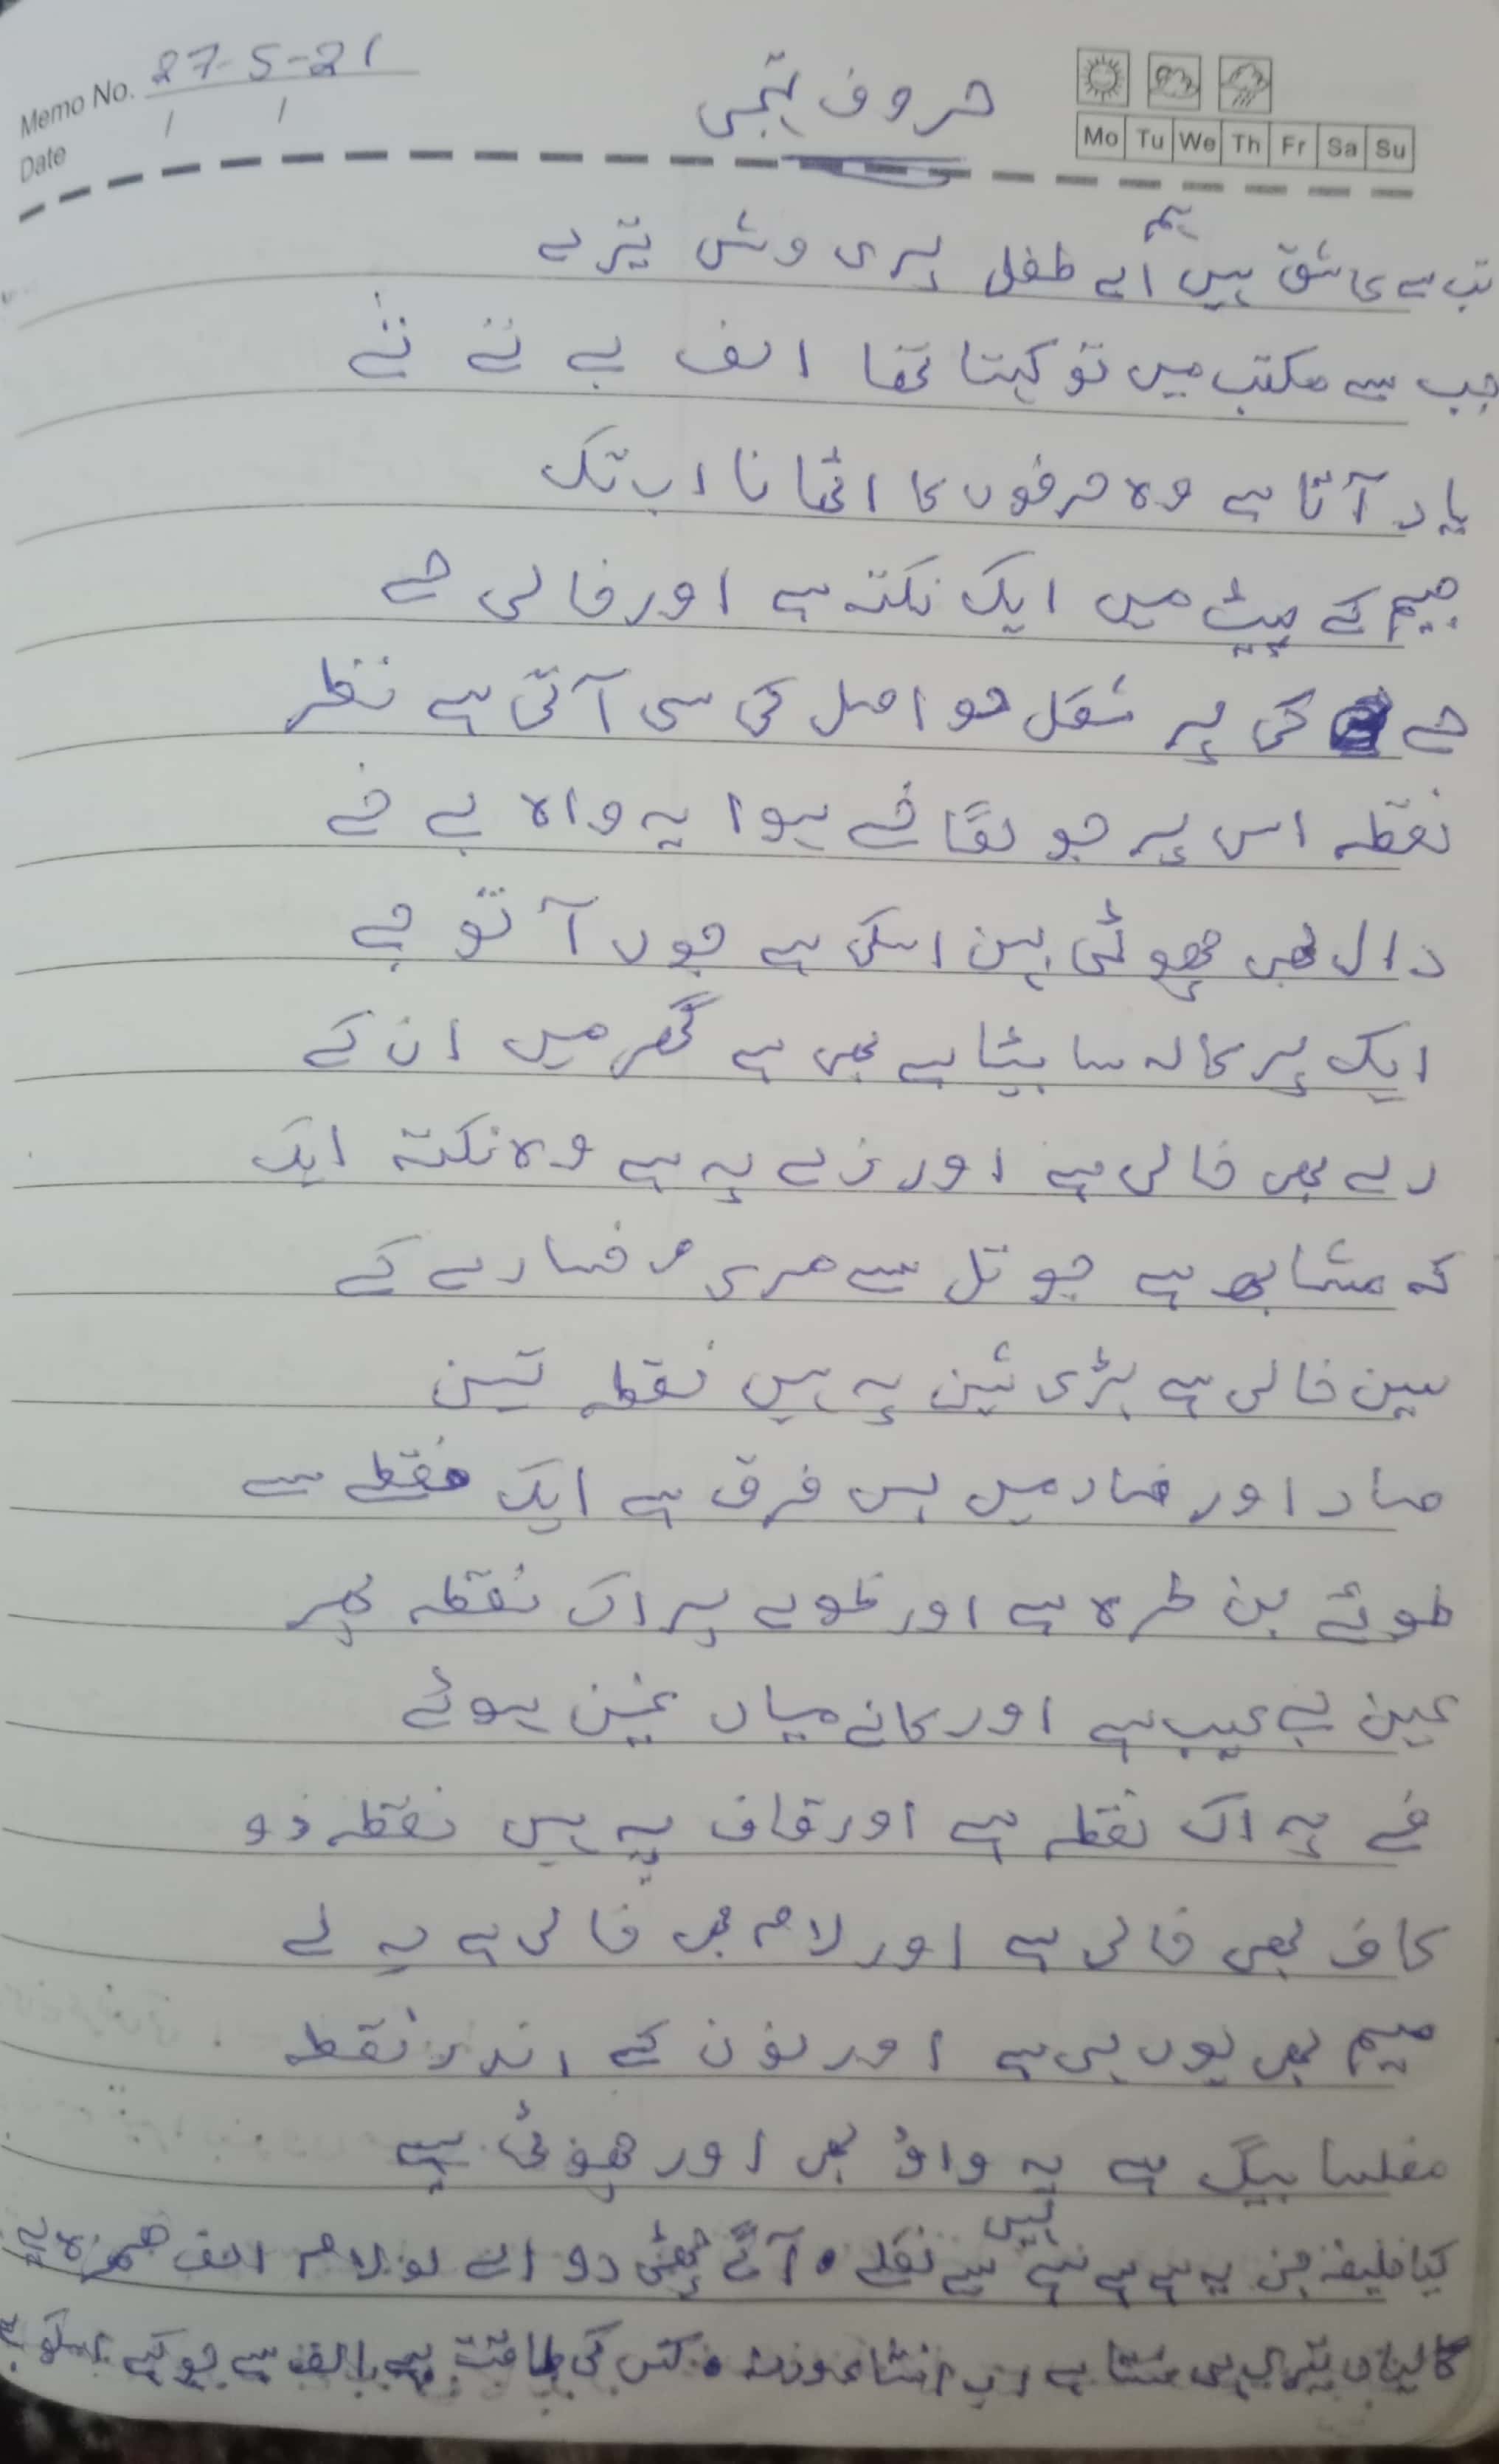 Memo No. 27-5-21
Date / /
حروف تہجی
Mo Tu We Th Fr Sa Su
تب سے عاشق ہیں ہم اے طفل پری وش تیرے
جب سے مکتب میں تو کہتا تھا الف بے تے ثے
یاد آتا ہے وہ حرفوں کا اٹھانا اب تک
جیم کے پیٹ میں ایک نکتہ ہے اور خالی حے
حے کی پر شکل حواصل کی سی آتی ہے نظر
نقطہ اس پر جو لگا خے ہوا یہ واہ بے خے
دال بھی چھوٹی بہن اسکی ہے جوں آتو جے
ایک پرکالہ سا بیٹا ہے بھی ہے گھر میں ان کے
رے بھی خالی ہے اور زے پہ ہے وہ نکتہ ایک
کہ مشابہ ہے جو تل سے مری رخسارے کے
سین خالی ہے بڑی شین پہ ہیں نقطہ تین
صاد اور ضاد میں بس فرق ہے ایک نقطے سے
طوئے بن طرہ ہے اور ظوے پر اک نقطہ پھر
عین بے عیب ہے اور کانے میاں غین ہوئے
فے پہ اک نقطہ ہے اور قاف پہ ہیں نقطہ دو
کاف بھی خالی ہے اور لام بھی خالی ہے یہ لے
میم بھی یوں ہی ہے اور نون کے اندر نقطہ
مفلسا بیگ ہے یہ واؤ بھی اور چھوٹی ہے
کیا خلیفہ جی یہ ہے ہے ہے سے نکلے آگے چھٹی دو اے لو لام الف ہمزہ یہ
گالیاں تیری ہی سنتا ہے اب انشا ورنہ کس کی طاقت ہے الف سے جو کہے اسکو بے